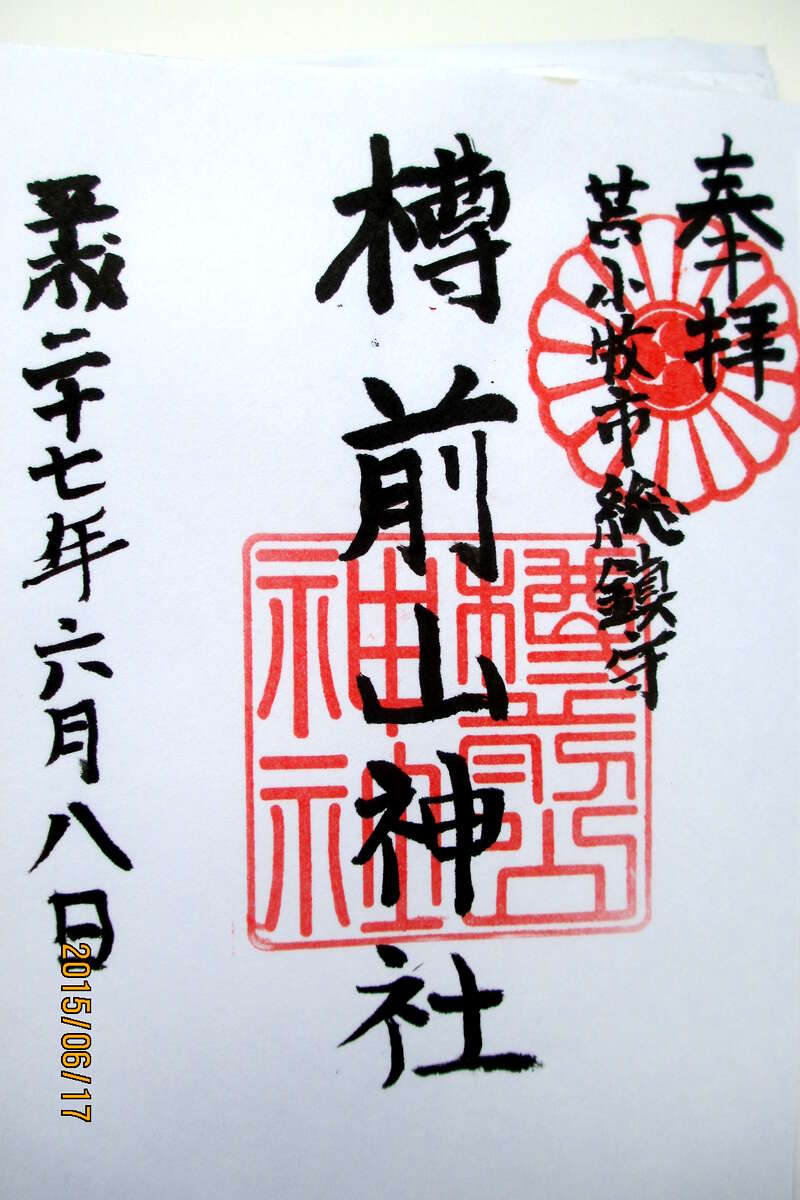 奉拝
苫小牧市総鎮守
樽前山神社
樽前山神社
平成二十七年六月八日
2015/06/17